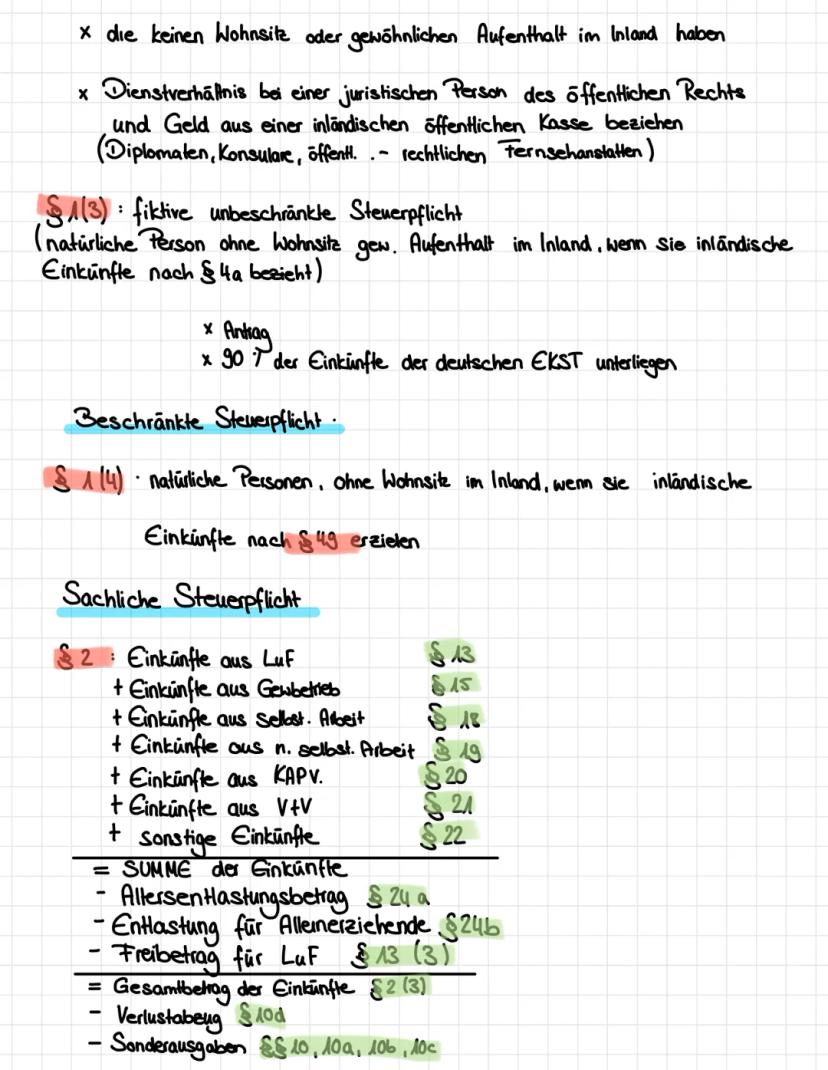 x die keinen Wohnsitz oder gewöhnlichen Aufenthalt im Inland haben
x Dienstverhältnis bei einer juristischen Person des öffentlichen Rechts
und Geld aus einer inländischen öffentlichen Kasse beziehen
(Diplomaten, Konsulare, öffentl. .- rechtlichen Fernsehanstalten)
§ 1(3) : fiktive unbeschränkte Steuerpflicht
(natürliche Person ohne Wohnsitz gew. Aufenthalt im Inland, wenn sie inländische
Einkünfte nach § 4a bezieht)
x Antrag
x 90 % der Einkünfte der deutschen EKST unterliegen
Beschränkte Steuerpflicht :
§ 1(4) : natürliche Personen, ohne Wohnsitz im Inland, wenn sie inländische
Einkünfte nach § 49 erzielen
Sachliche Steuerpflicht
§ 2 : Einkünfte aus LuF § 13
+ Einkünfte aus Gewbetrieb § 15
+ Einkünfte aus selbst. Arbeit § 18
+ Einkünfte aus n. selbst. Arbeit § 19
+ Einkünfte aus KAPV. § 20
+ Einkünfte aus V+V § 21
+ sonstige Einkünfte § 22
= SUMME der Einkünfte
- Altersentlastungsbetrag § 24 a
- Entlastung für Alleinerziehende § 24b
- Freibetrag für LuF § 13 (3)
= Gesamtbetrag der Einkünfte § 2 (3)
- Verlustabzug § 10d
- Sonderausgaben §§ 10, 10a, 10b, 10c